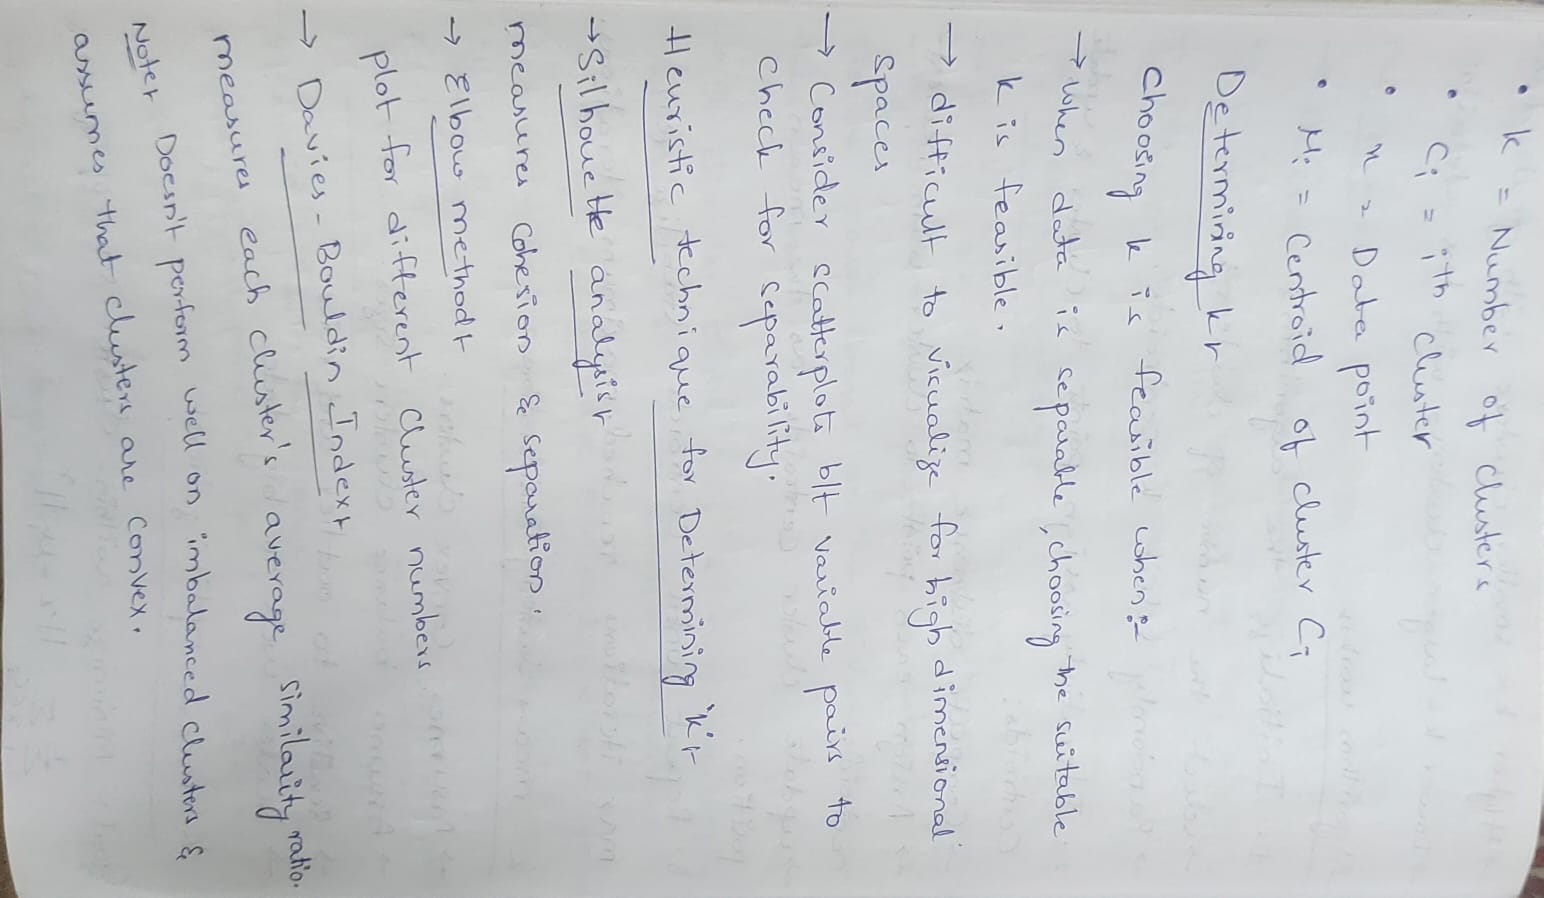 • k = Number of clusters
• Ci = ith cluster
• x = Data point
• μi = Centroid of cluster Ci
Determining k:-
Choosing k is feasible when:-
→ When data is separable, choosing the suitable
k is feasible.
→ difficult to visualize for high dimensional
spaces
→ Consider scatterplots b/t variable pairs to
check for separability.
Heuristic technique for Determining 'k':-
→ Silhouette analysis:-
measures cohesion & separation.
→ Elbow method:-
plot for different Cluster numbers
→ Davies-Bouldin Index:-
measures each cluster's average similarity ratio.
Note:- Doesn't perform well on imbalanced clusters &
assumes that clusters are convex.